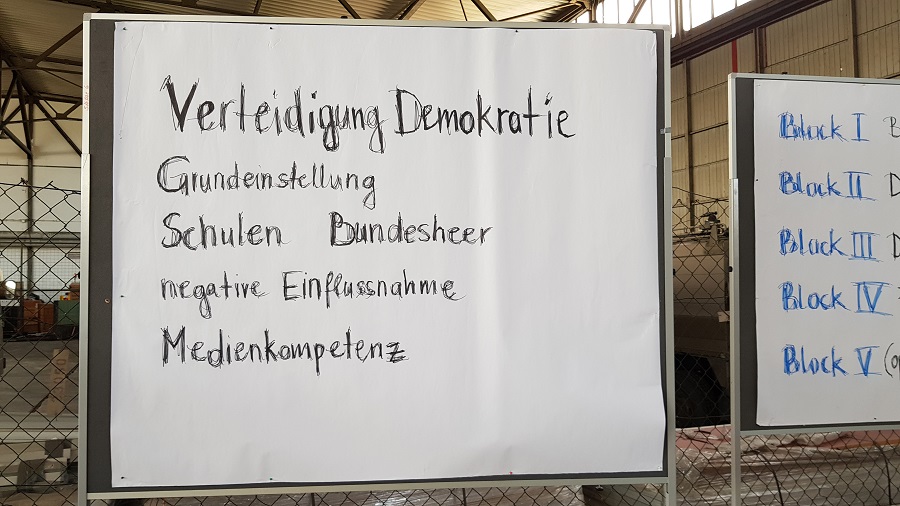 Verteidigung Demokratie
Grundeinstellung
Schulen Bundesheer
negative Einflussnahme
Medienkompetenz
Block I B
Block II D
Block III D
Block IV
Block V (op